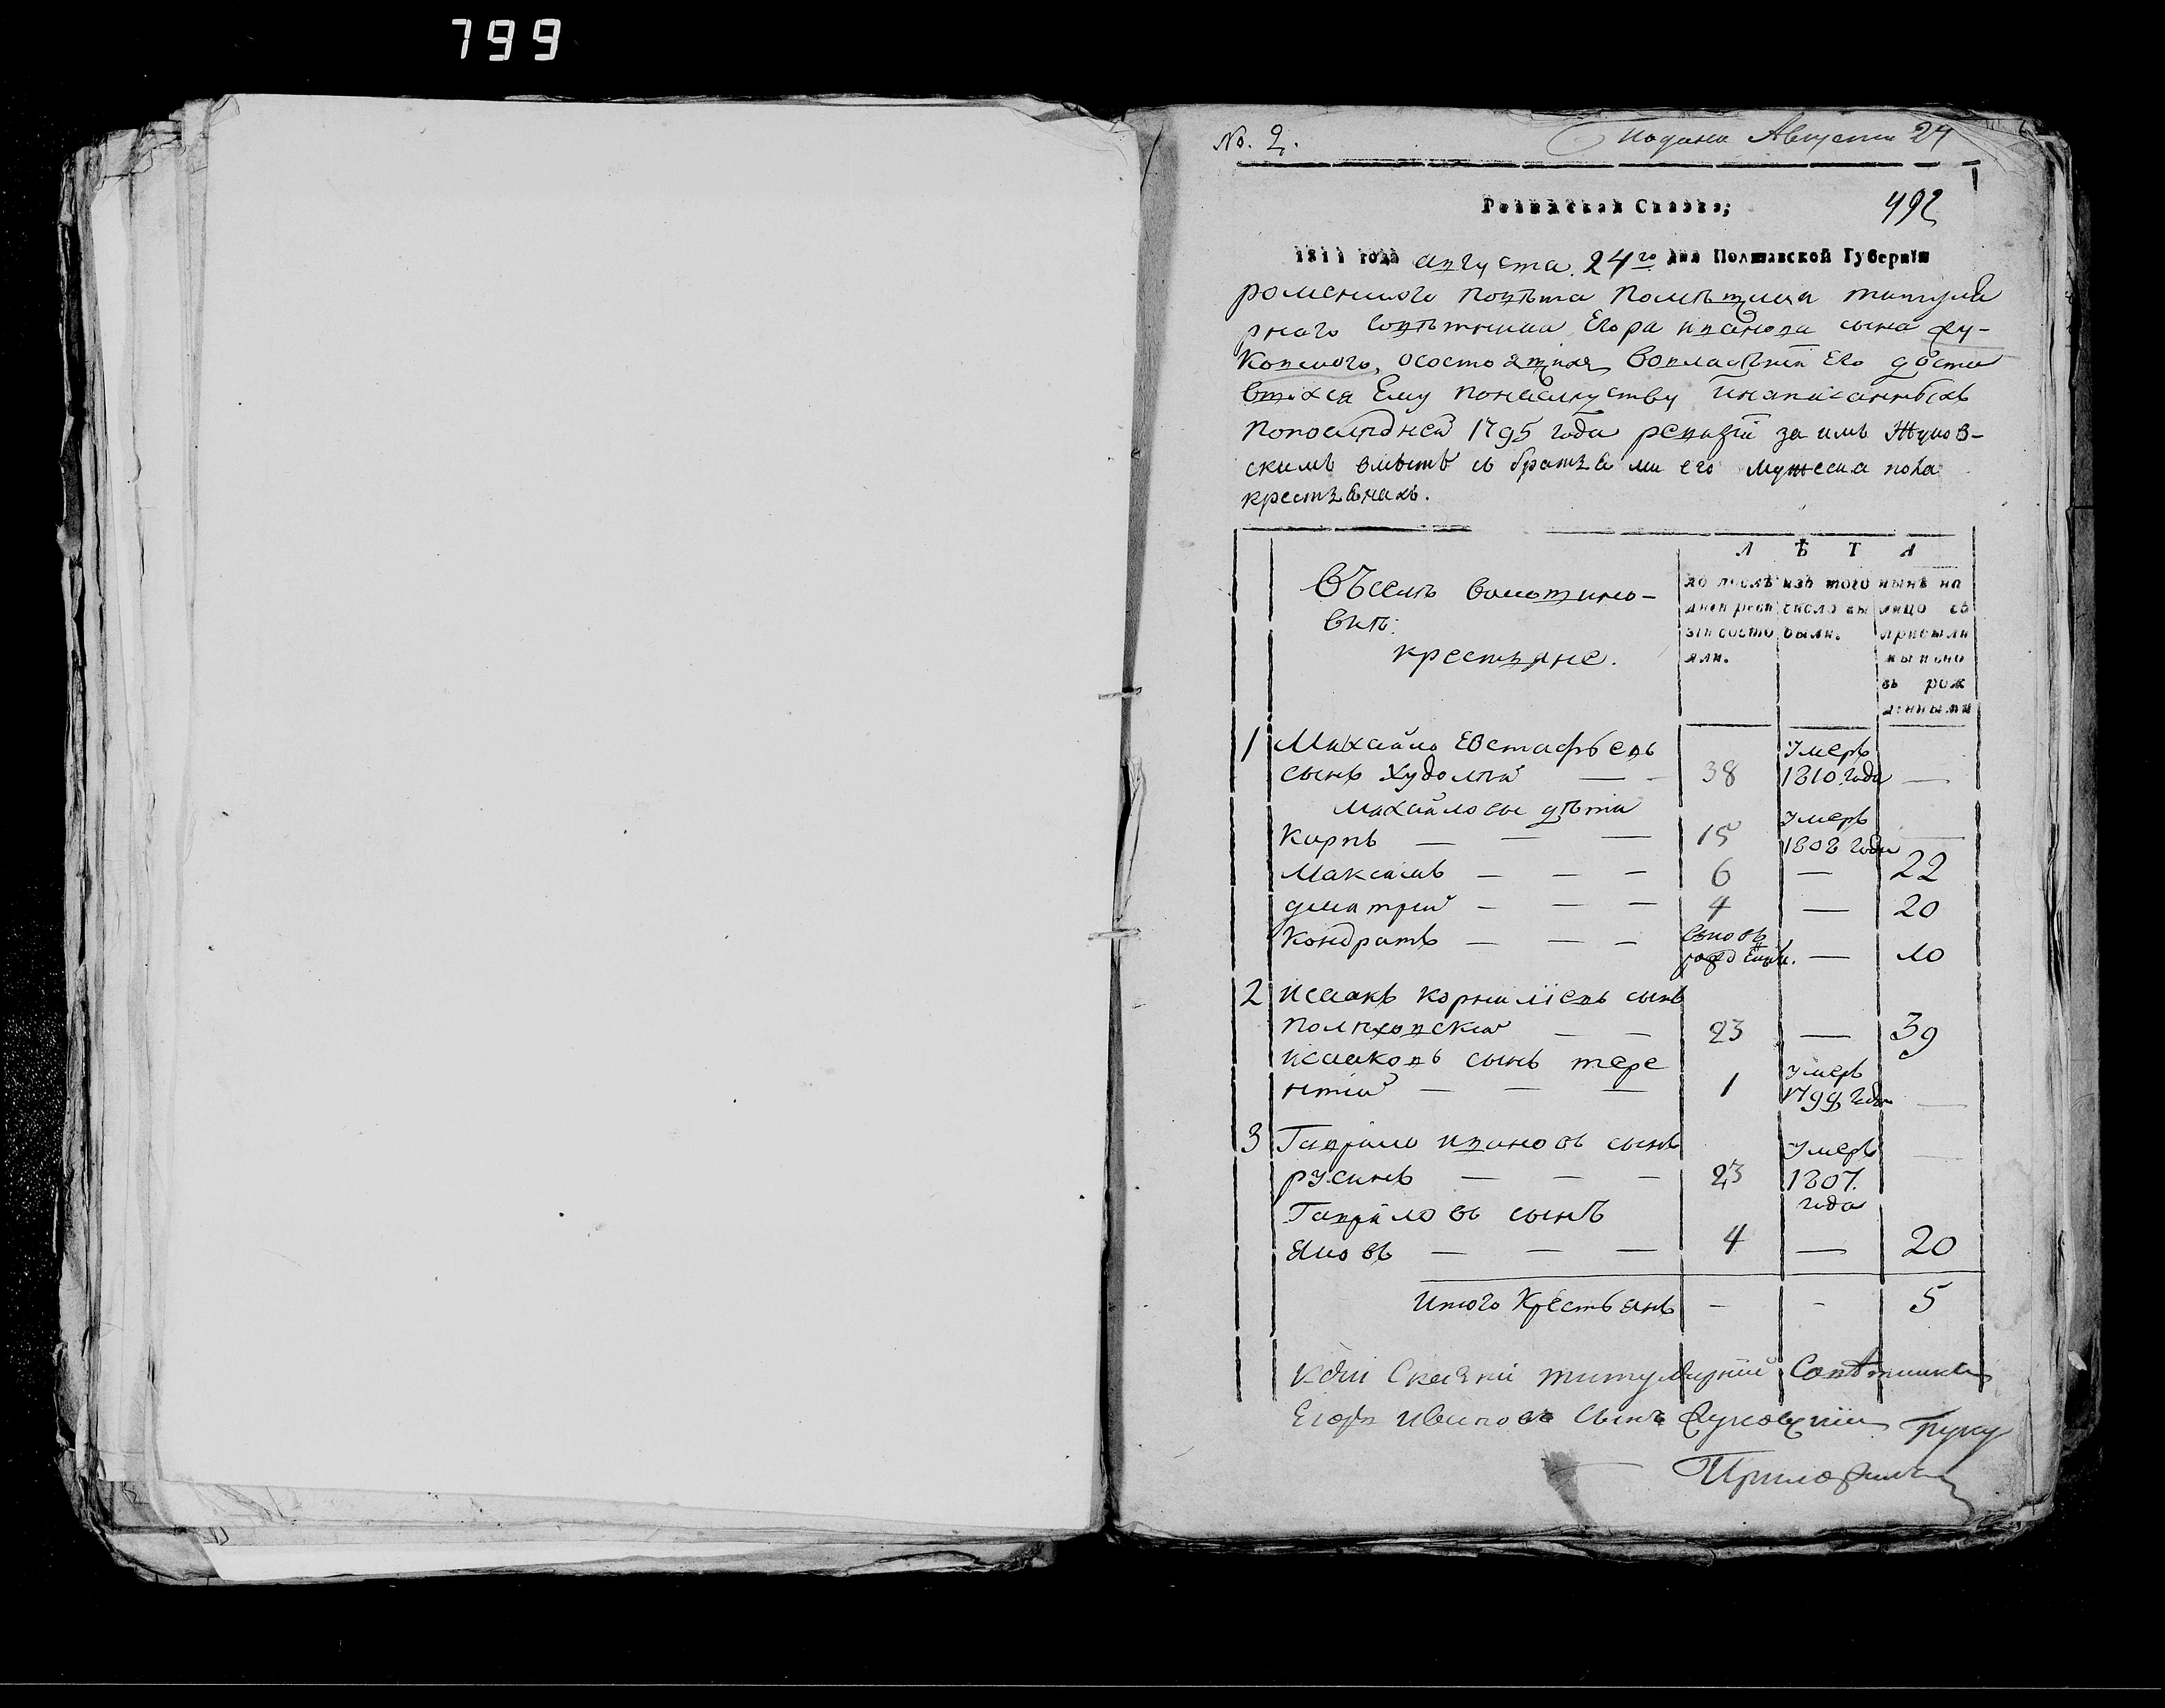 799
No. 2.
подана Августа 24
Ревижская Сказка;
492
1811 года августа 24го дня Полтавской Губернїи
роменского повѣта помѣщика титуля
рнаго совѣтника Егора иванова сына Жу-
ковского, осостоящихъ вовладѣнїи Его доста
вшихся Ему понаслѣдству инаписанныхъ
попослѣдней 1795 года ревизїи за имъ Жуков-
скимъ вместѣ съ братьями его мужеска пола
крестьянахъ.
Л Ѣ Т А
Въселѣ
вкѣ.
крестьяне.
по послѣ
дней реви
зїи состо
яли.
изъ того
числа вы
были.
нынѣ на
лицо съ
прибылы
ми и вно
въ рож
денными
1 Михайло Евстафьевъ
сынъ Худолѣй — 38 Умеръ 1810 года —
Михайловы дѣти
Карпъ — — — 15 Умеръ 1808 года —
Максимъ — — — 6 — 22
дмитрий — — — 4 — 20
Кондратъ — — — вновь рожденъ. — 10
2 исаакъ корнилїевъ сынъ
полѣховский — — 23 — 39
исааковъ сынъ тере
нтий — — — 1 Умеръ 1799 года —
3 Гаврило ивановъ сынъ
русинъ — — — 23 Умеръ 1807. года —
Гавриловъ сынъ
Яковъ — — — 4 — 20
Итого Крестьянъ — - 5
Кѣсей Скаски титулярний Совѣтникъ
Егоръ Ивановъ Сынъ Жуковский руку
Приложилъ